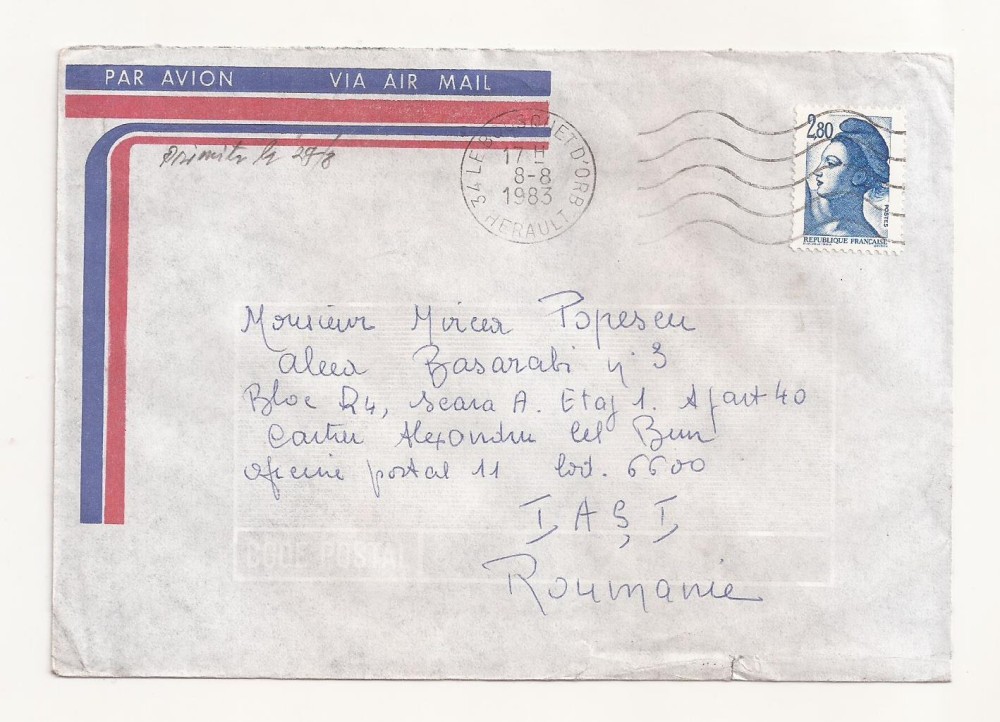 PAR AVION VIA AIR MAIL
34 LE BOUSQUET D'ORB
17 H
8-8
1983
HERAULT
2,80
POSTES
REPUBLIQUE FRANCAISE
Primita la 29/8
Monsieur Mircea Popescu
Aleea Basarabi n° 3
Bloc R4, scara A. Etaj 1. Apart 40
Cartier Alexandru cel Bun
oficiul postal 11 Cod. 6600
IAȘI
CODE POSTAL
Roumanie